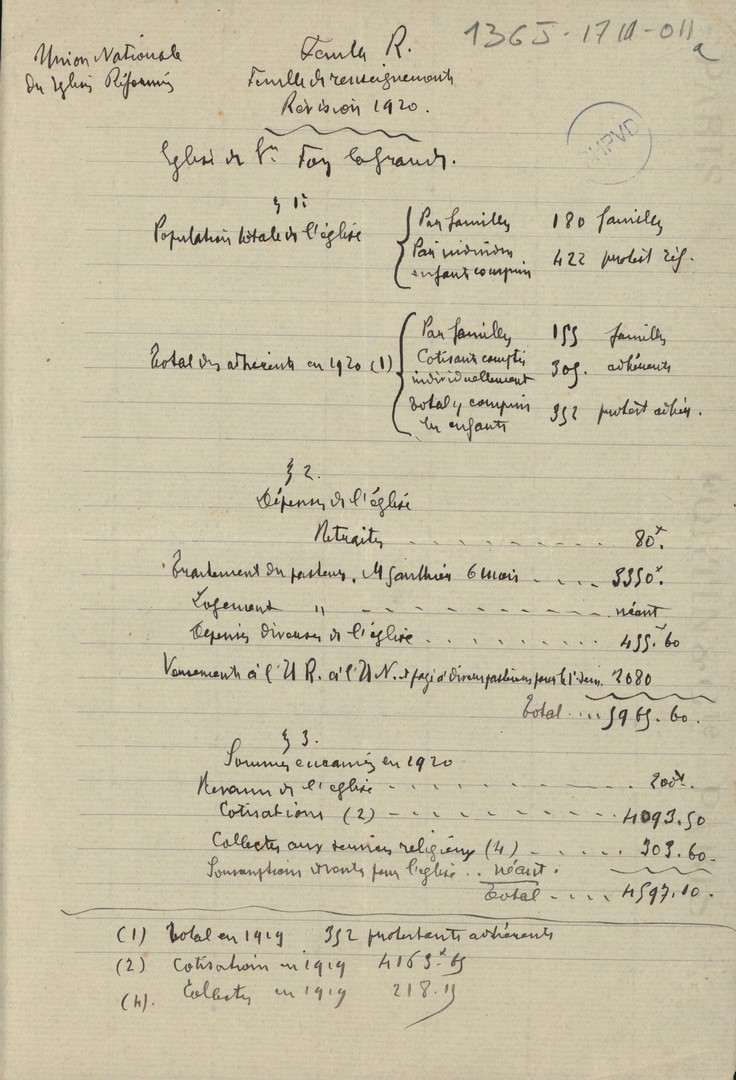 1365-17 III-011a
Union Nationale
des Eglises Réformées
Feuille R.
Feuille de renseignements
Révision 1920.
HPVD
Eglise de Ste Foy la Grande.
§ 1er
Population totale de l'église
Par familles 180 familles
Par individus enfants compris 422 protest réf.
Total des adhérents en 1920 (1)
Par familles 155 familles
Cotisants comptés individuellement 305. adhérents
Total y compris les enfants 352 protest adhér.
§ 2.
Dépenses de l'église
Retraites 80f.
Traitement du pasteur, M Gauthier 6 mois 3350f.
Logement " néant
Dépenses diverses de l'église 455.60
Versements à l'U R. à l'U N. et payé à divers pasteurs pour le 1er sem. 2080
Total 5965.60.
§ 3.
Sommes encaissées en 1920
Revenus de l'église 200f.
Cotisations (2) 4093.50
Collectes aux services religieux (4) 303.60.
Souscriptions et ventes pour l'église néant.
Total 4597.10.
(1) Total en 1919 352 protestants adhérents
(2) Cotisations en 1919 4163f.65
(4). Collectes en 1919 218.15